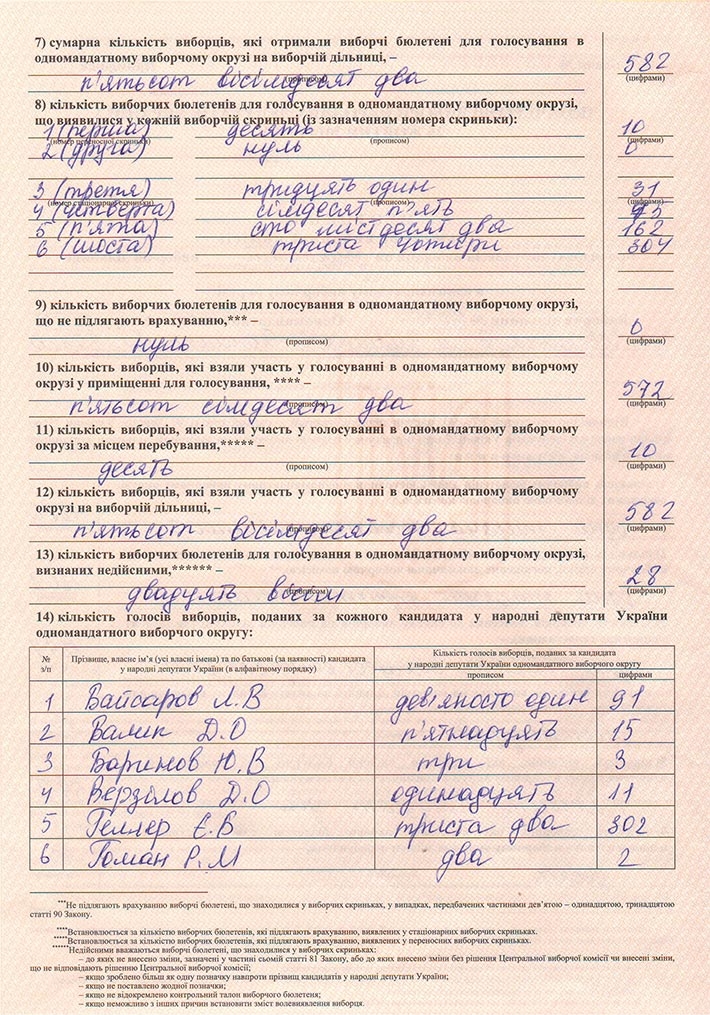 7) сумарна кількість виборців, які отримали виборчі бюлетені для голосування в
одномандатному виборчому окрузі на виборчій дільниці, –
582
п'ятьсот вісімдесят два
(прописом) (цифрами)
8) кількість виборчих бюлетенів для голосування в одномандатному виборчому окрузі,
що виявилися у кожній виборчій скриньці (із зазначенням номера скриньки):
1 (перша) десять 10
(номер переносної скриньки) (прописом) (цифрами)
2 (друга) нуль 0
3 (третя) тридцять один 31
(номер стаціонарної скриньки) (прописом) (цифрами)
4 (четверта) сімдесят п'ять 75
5 (п'ята) сто шістдесят два 162
6 (шоста) триста чотири 304
9) кількість виборчих бюлетенів для голосування в одномандатному виборчому окрузі,
що не підлягають врахуванню,*** –
0
нуль
(прописом) (цифрами)
10) кількість виборців, які взяли участь у голосуванні в одномандатному виборчому
окрузі у приміщенні для голосування, **** –
572
п'ятьсот сімдесят два
(прописом) (цифрами)
11) кількість виборців, які взяли участь у голосуванні в одномандатному виборчому
окрузі за місцем перебування,***** –
10
десять
(прописом) (цифрами)
12) кількість виборців, які взяли участь у голосуванні в одномандатному виборчому
окрузі на виборчій дільниці, –
582
п'ятьсот вісімдесят два
(прописом) (цифрами)
13) кількість виборчих бюлетенів для голосування в одномандатному виборчому окрузі,
визнаних недійсними,****** –
28
двадцять вісім
(прописом) (цифрами)
14) кількість голосів виборців, поданих за кожного кандидата у народні депутати України
одномандатного виборчого округу:
№ з/п
Прізвище, власне ім’я (усі власні імена) та по батькові (за наявності) кандидата
у народні депутати України (в алфавітному порядку)
Кількість голосів виборців, поданих за кандидата
у народні депутати України одномандатного виборчого округу
прописом цифрами
1 Вайсаров Л.В дев'яносто один 91
2 Валик Д.О п'ятнадцять 15
3 Баринов Ю.В три 3
4 Верзілов Д.О одинадцять 11
5 Геллер Є.Б триста два 302
6 Гоман Р.М два 2
***Не підлягають врахуванню виборчі бюлетені, що знаходилися у виборчих скриньках, у випадках, передбачених частинами дев’ятою – одинадцятою, тринадцятою
статті 90 Закону.
****Встановлюється за кількістю виборчих бюлетенів, які підлягають врахуванню, виявлених у стаціонарних виборчих скриньках.
*****Встановлюється за кількістю виборчих бюлетенів, які підлягають врахуванню, виявлених у переносних виборчих скриньках.
******Недійсними вважаються виборчі бюлетені, що знаходилися у виборчих скриньках:
– до яких не внесено зміни, зазначені у частині сьомій статті 81 Закону, або до яких внесено зміни без рішення Центральної виборчої комісії чи внесені зміни,
що не відповідають рішенню Центральної виборчої комісії;
– якщо зроблено більш як одну позначку навпроти прізвищ кандидатів у народні депутати України;
– якщо не поставлено жодної позначки;
– якщо не відокремлено контрольний талон виборчого бюлетеня;
– якщо неможливо з інших причин встановити зміст волевиявлення виборця.